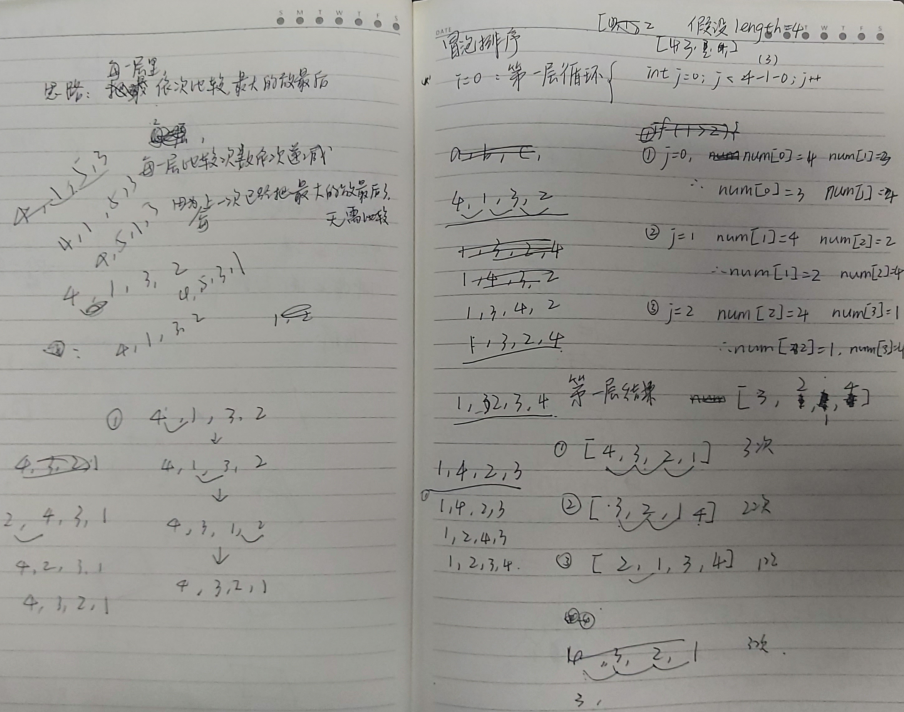 每一层里
思路: 依次比较,最大的放最后
每一层比较次数依次递减
因为上一次已经把最大的放最后了
无需比较
4,1,5,3
4,1,5,3
4,5,1,3
4,1,3,2
4,5,3,1
4,1,3,2
① 4,1,3,2
↓
4,1,3,2
↓
4,3,1,2
↓
4,3,2,1
4,3,2,1
2,4,3,1
4,2,3,1
4,3,2,1
冒泡排序
假设length=4
i=0:第一层循环{
(3)
int j=0; j<4-1-0; j++
if(1>2){
① j=0, num[0]=4 num[1]=3
∴ num[0]=3 num[1]=4
② j=1 num[1]=4 num[2]=2
∴num[1]=2 num[2]=4
③ j=2 num[2]=4 num[3]=1
∴num[2]=1, num[3]=4
a,b,c,
4,1,3,2
1,3,2,4
1,4,3,2
1,3,4,2
1,3,2,4
1,2,3,4
第一层结果 [3,2,1,4]
1,4,2,3
1,4,2,3
1,2,4,3
1,2,3,4.
① [4,3,2,1] 3次
② [3,2,1 4] 2次
③ [2,1,3,4]
④
4,3,2,1 3次.
3,